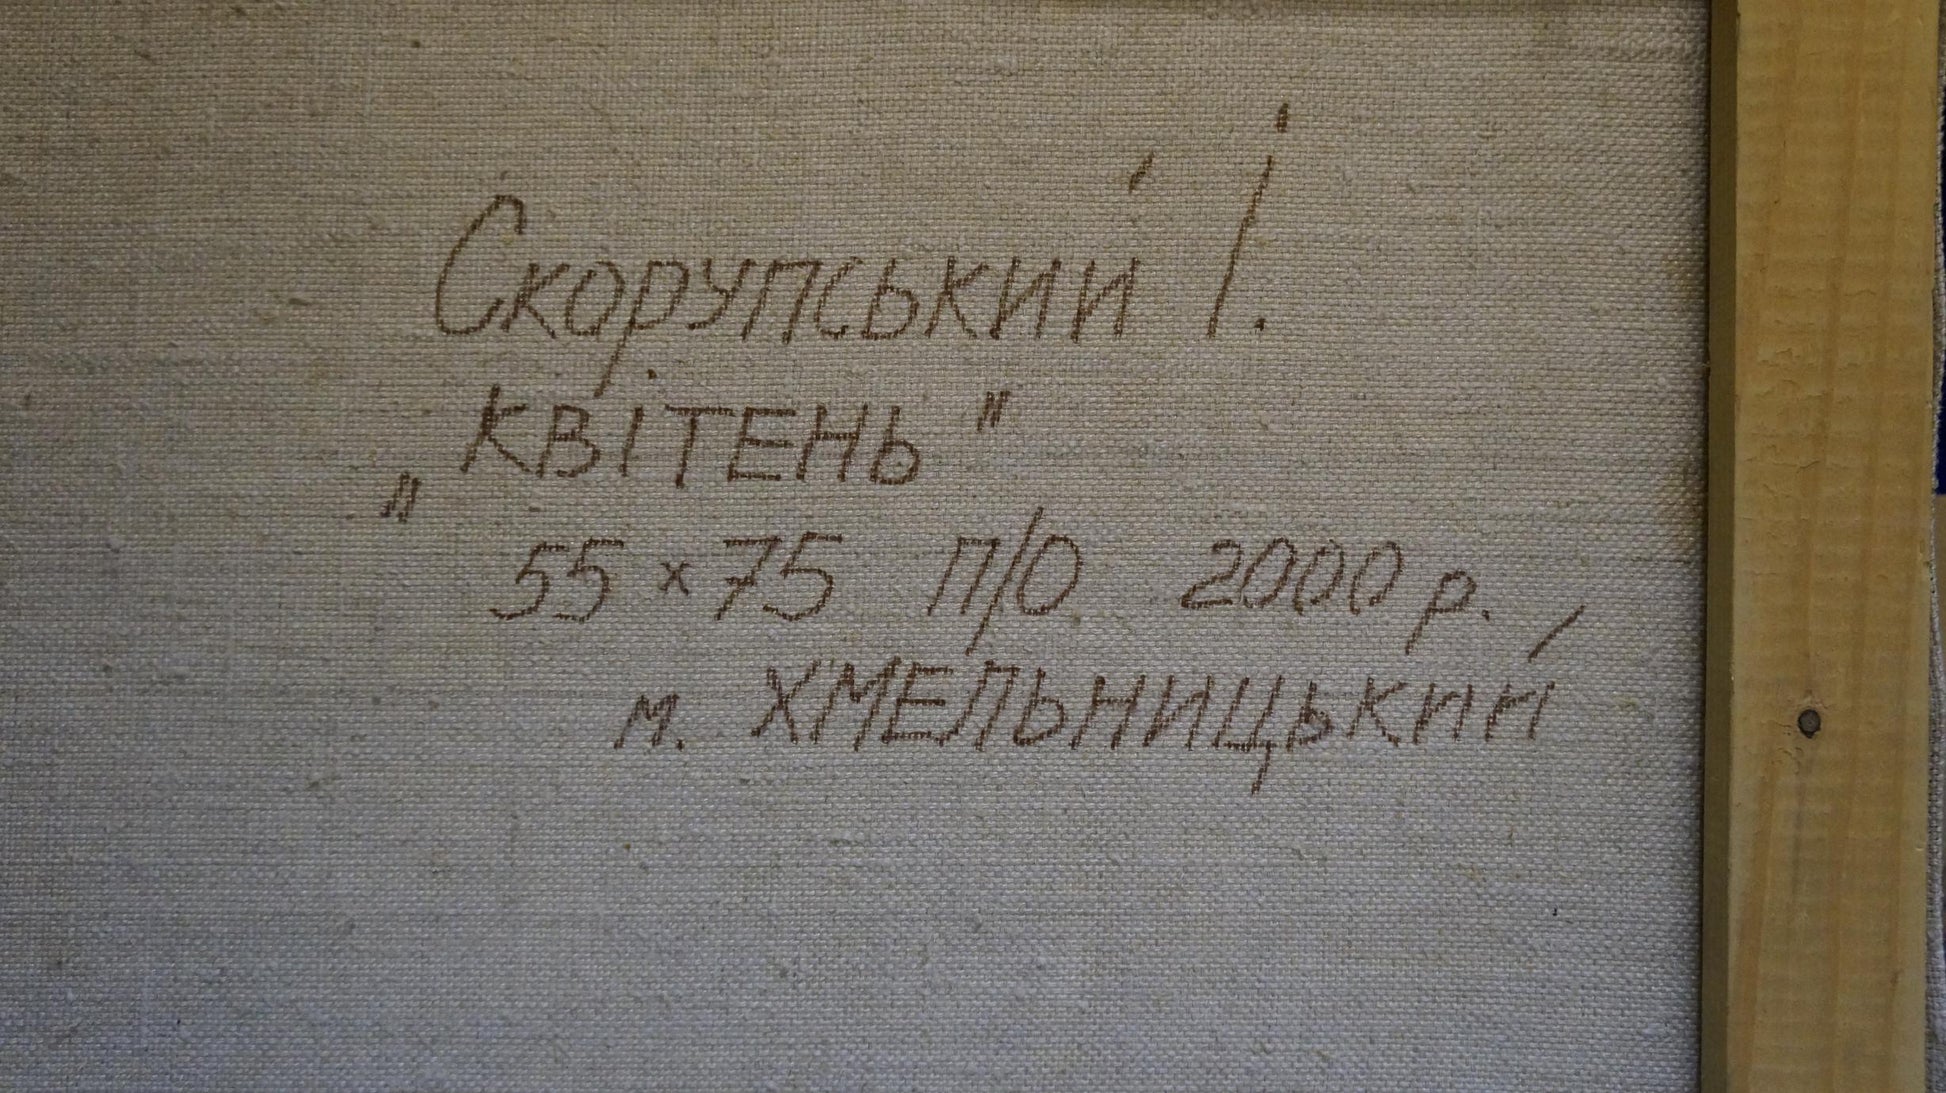 Скорупський І.
„КВІТЕНЬ"
55 × 75 П/О 2000 р.
м. ХМЕЛЬНИЦЬКИЙ